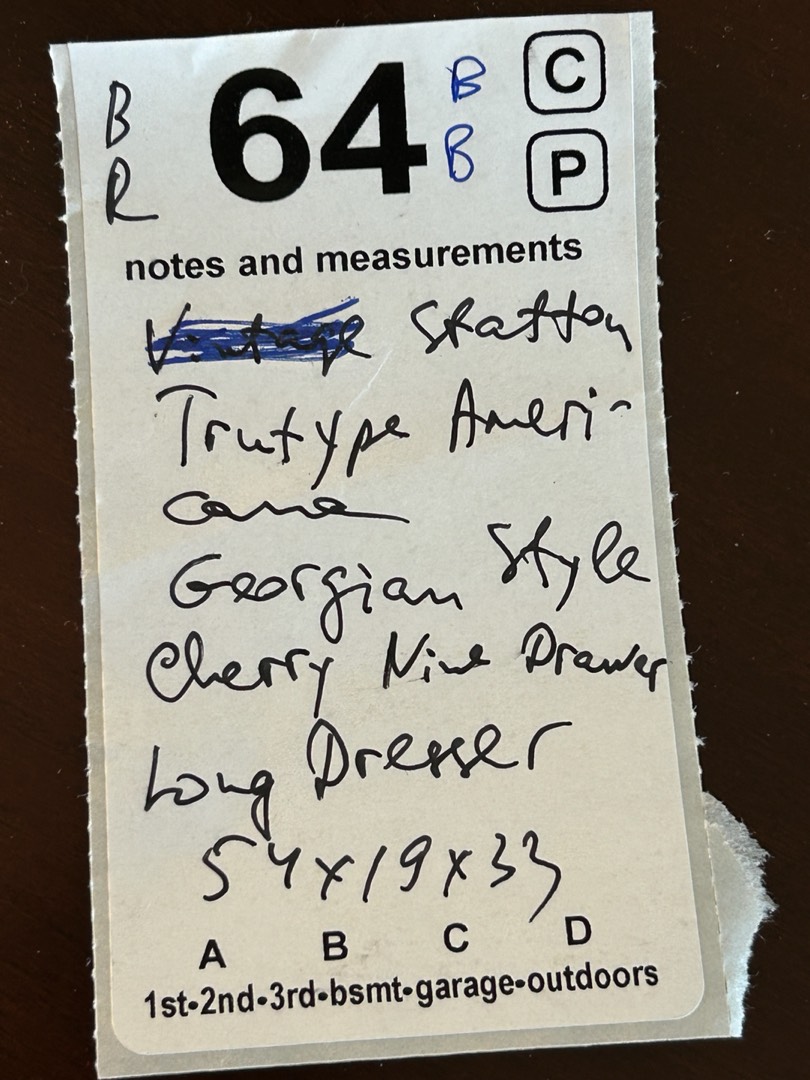 B 64 B C
R B P
notes and measurements
Vintage Statton
Trutype Ameri-
cana
Georgian Style
Cherry Nine Drawer
Long Dresser
54x19x33
A B C D
1st•2nd•3rd•bsmt•garage•outdoors